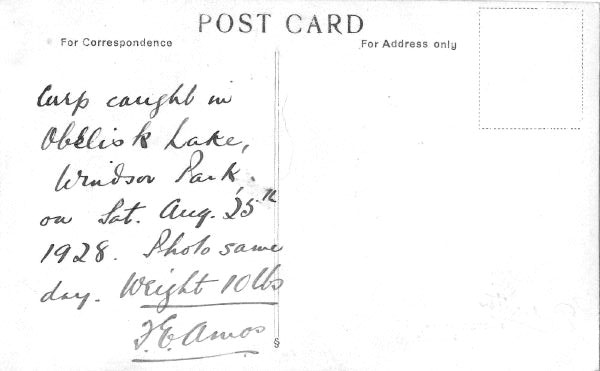 POST CARD
For Correspondence
For Address only
Carp caught in
Obelisk Lake,
Windsor Park,
on Sat. Aug. 25th
1928. Photo same
day. Weight 10 lbs
F. E. Amos
§